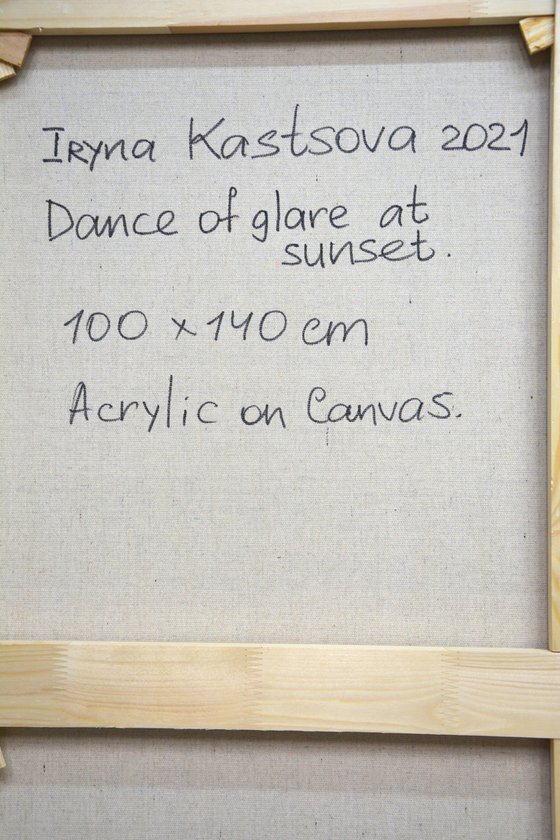 Iryna Kastsova 2021
Dance of glare at
sunset.
100 x 140 cm
Acrylic on Canvas.